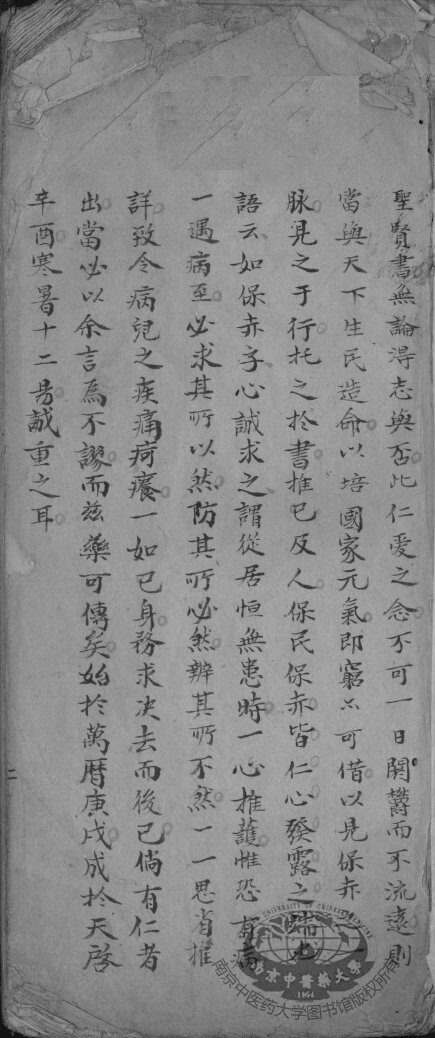 聖賢書無論淂志與否此仁愛之念不可一日閼欝而不流遠則
當與天下生民造命以培國家元氣即窮亦可借以見保赤
脉見之于行托之於書推已及人保民保赤皆仁心發露之端也
語云如保赤子心誠求之謂從居恒無患時一心推護惟恐有病
一遇病至必求其所以然防其所必然辦其所不然一一思省推
詳致令病兒之疾痛疴癢一如已身務求决去而後已倘有仁者
出當必以余言為不謬而茲藥可傳矣始於萬曆庚戌成於天啓
辛酉寒暑十二易誠重之耳
二
UNIVERSITY OF CHINESE MEDICINE
南京中醫藥大學
1954
南京中医药大学图书馆版权所有